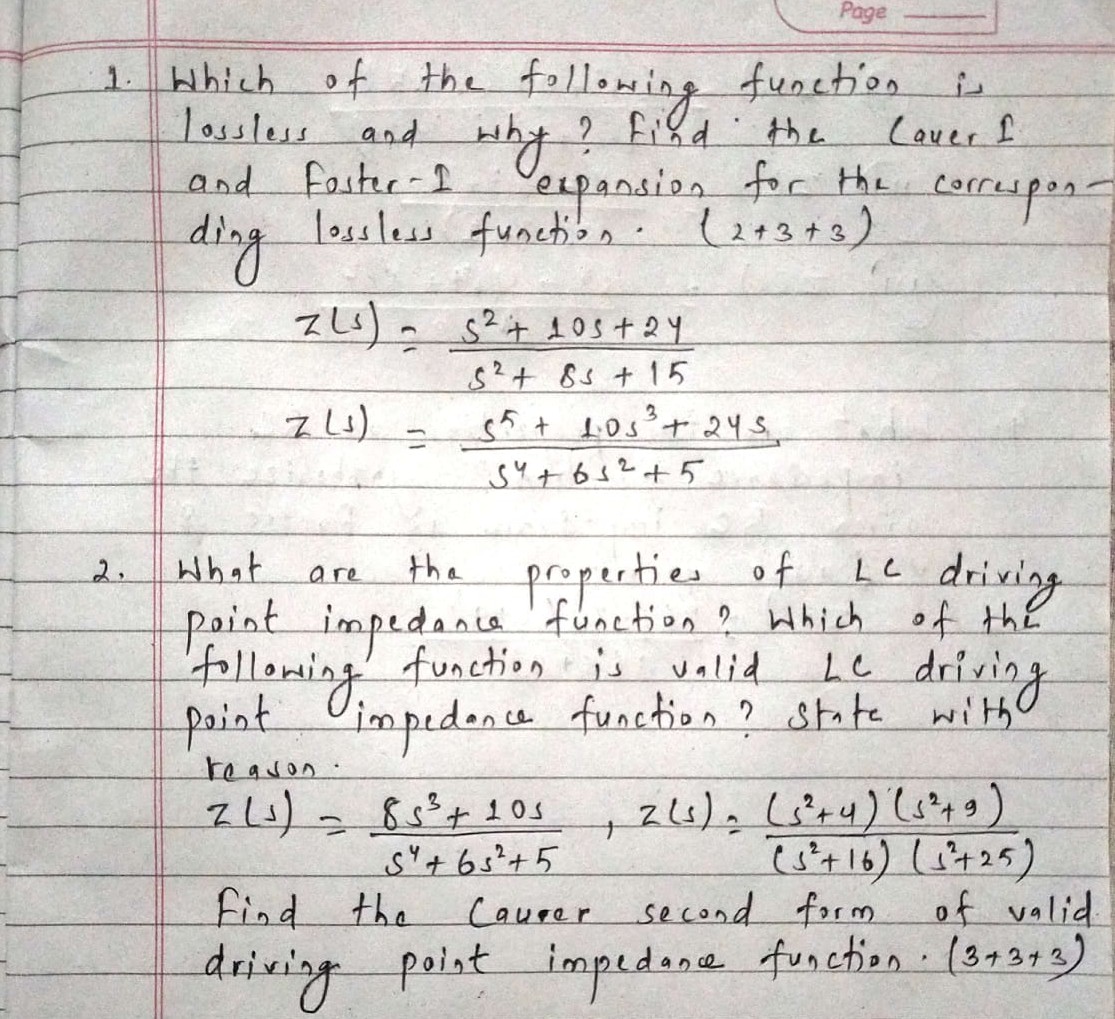 Page
1. Which of the following function is
lossless and why? Find the Cauer I
and Foster-I expansion for the correspon-
ding lossless function. (2+3+3)
Z(s) = s²+10s+24
s²+8s+15
Z(s) = s⁵+10s³+24s
s⁴+6s²+5
2. What are the properties of LC driving
point impedance function? Which of the
following function is valid LC driving
point impedance function? State with
reason.
Z(s) = 8s³+10s , Z(s) = (s²+4)(s²+9)
s⁴+6s²+5 (s²+16)(s²+25)
Find the Cauer second form of valid
driving point impedance function. (3+3+3)